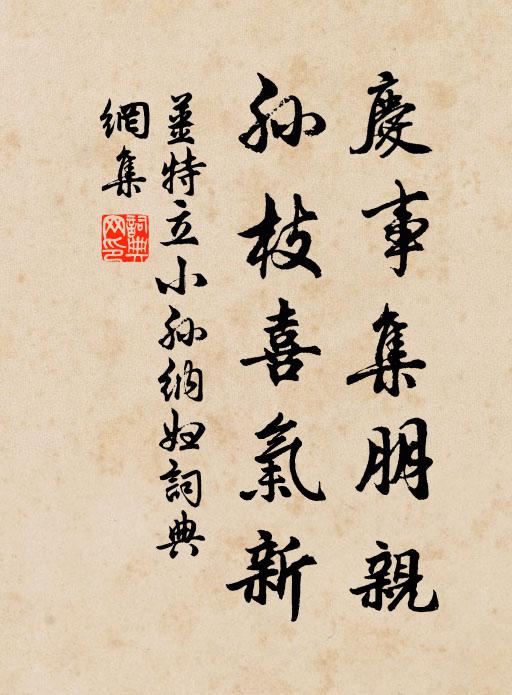 慶事集朋親
孫枝喜氣新
姜特立小孫納婦詞典
網集
詞典網印